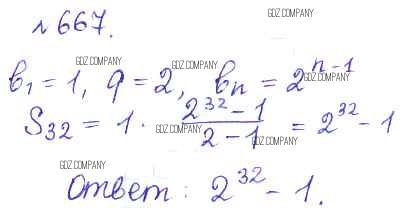 GDZ.COMPANY
№667.
GDZ.COMPANY GDZ.COMPANY
b₁ = 1, q = 2, bₙ = 2ⁿ⁻¹
GDZ.COMPANY
S₃₂ = 1 · (2³² - 1)/(2 - 1) = 2³² - 1
GDZ.COMPANY GDZ.COMPANY
GDZ.COMPANY
Ответ: 2³² - 1.